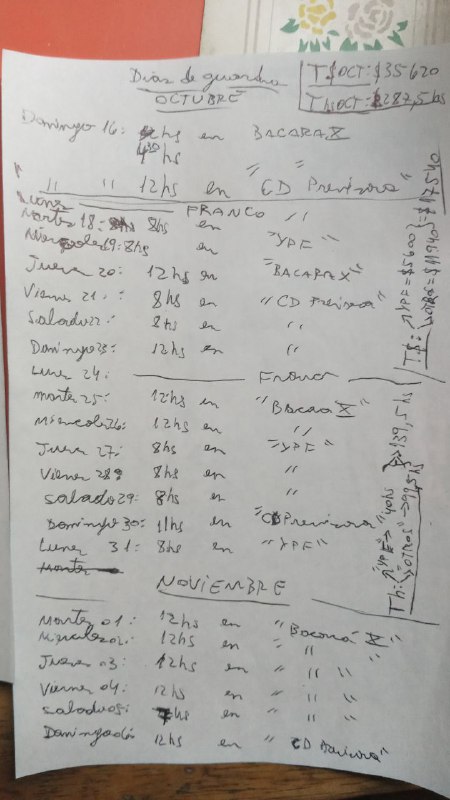 Dias de guardia
OCTUBRE
T$OCT: $35620
ThsOCT: 287,5 hs
Domingo 16: hs en BACARA X
4³⁰ hs
" " 12hs en "CD Previsora"
Lunes FRANCO
Martes 18: 8hs en "
Miercoles 19: 8hs en "YPF"
Jueves 20: 12hs en "BACARA X"
Viernes 21: 8hs en "CD Previsora"
Sabado 22: 8hs en "
Domingo 23: 12hs en "
Lunes 24: Franco
Martes 25: 12hs en "Bacara X"
Miercoles 26: 12hs en "
Jueves 27: 8hs en "YPF"
Viernes 28: 8hs en "
Sabado 29: 8hs en "
Domingo 30: 11hs en "CD Previsora"
Lunes 31: 8hs en "YPF"
NOVIEMBRE
Martes 01: 12hs en "Bacará X"
Miercoles 02: 12hs en " "
Jueves 03: 12hs en " " "
Viernes 04: 12hs en " " "
Sabado 05: hs en " " "
Domingo 06: 12hs en "CD Previsora"
T$: YPF = $5600
OTROS = $11940
= $17540
Th: "YPF" → 40hs
"OTROS" → 99,5hs
139,5 hs